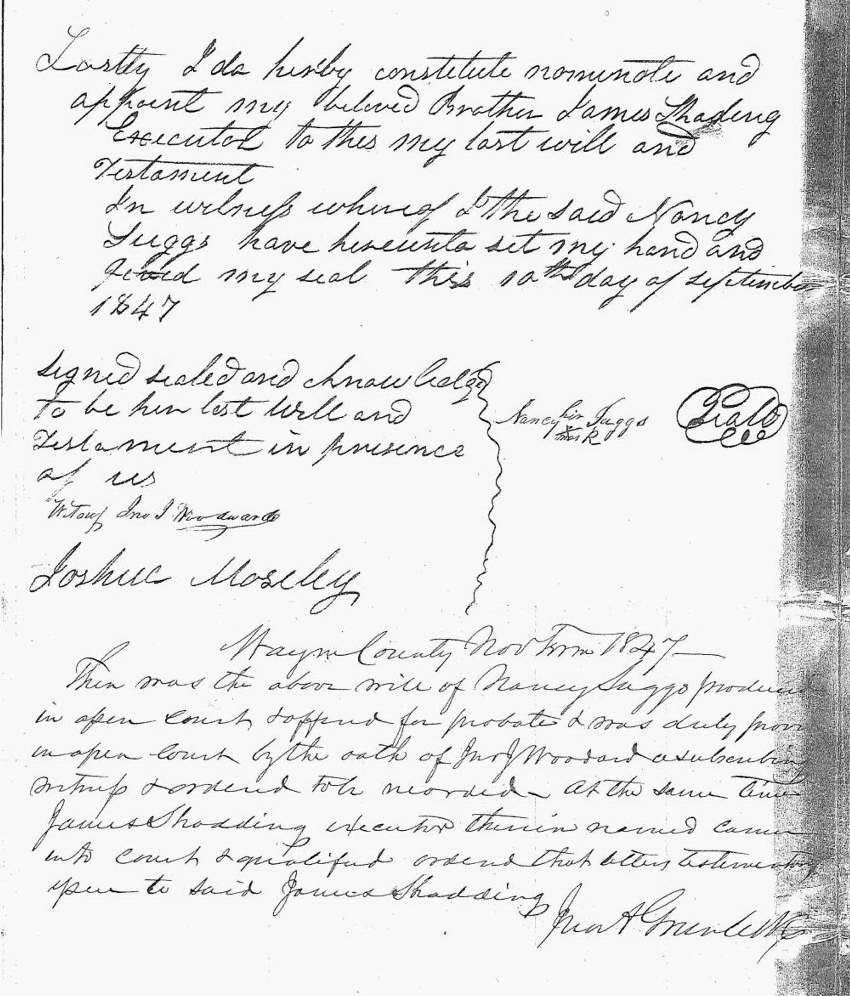 Lastly I do herby constitute nominate and
appoint my beloved Brother James Shading
Executor to this my last will and
Testament
In witness whereof I the said Nancy
Suggs have hereunto set my hand and
my seal this 10th day of September
1847
signed sealed and
to be her last Will and
Testament in presence
of us
Nancy her Suggs
X
mark
Seal
Witness Jno J. Woodward
Joshua Moseley
Wayne County Nov Term 1847
Then was the above will of Nancy Suggs produced
in open court & offered for probate & was duly
in open court by the oath of Jno J Woodard a subscribing
witness & ordered to be recorded - At the same time
James Shadding executor therein named came
into court & qualified ordered that letters testementary
to said James Shadding
Jno A Green